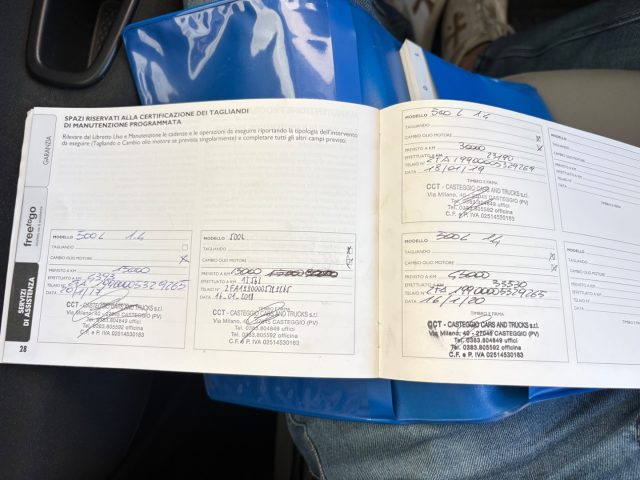 SPAZI RISERVATI ALLA CERTIFICAZIONE DEI TAGLIANDI
DI MANUTENZIONE PROGRAMMATA
Rilevare dal Libretto Uso e Manutenzione le cadenze e le operazioni da eseguire riportando la tipologia dell'intervento
da eseguire (Tagliando o Cambio olio motore se previsto singolarmente) e completare tutti gli altri campi previsti.
GARANZIA
free to go
SERVIZI
DI ASSISTENZA
28
MODELLO 500L 1.4
TAGLIANDO
CAMBIO OLIO MOTORE
PREVISTO A KM 15000
EFFETTUATO A KM
TELAIO N°
DATA
TIMBRO E FIRMA
CCT - CASTEGGIO CARS AND TRUCKS s.r.l.
Via Milano, 40 - 27045 CASTEGGIO (PV)
Tel. 0383.804849 uffici
Tel. 0383.805592 officina
C.F. e P. IVA 02514530183
MODELLO 500L
TAGLIANDO
CAMBIO OLIO MOTORE
PREVISTO A KM 15000
EFFETTUATO A KM
TELAIO N°
DATA 16.01.2018
CCT - CASTEGGIO CARS AND TRUCKS s.r.l.
Via Milano, 40 - 27045 CASTEGGIO (PV)
Tel. 0383.804849 uffici
Tel. 0383.805592 officina
C.F. e P. IVA 02514530183
MODELLO 500L 1.4
TAGLIANDO
CAMBIO OLIO MOTORE
PREVISTO A KM 30000
EFFETTUATO A KM 23190
TELAIO N°
DATA 18/01/19
TIMBRO E FIRMA
CCT - CASTEGGIO CARS AND TRUCKS s.r.l.
Via Milano, 40 - 27045 CASTEGGIO (PV)
Tel. 0383.804849 uffici
Tel. 0383.805592 officina
C.F. e P. IVA 02514530183
MODELLO 500L 1.4
TAGLIANDO
CAMBIO OLIO MOTORE
PREVISTO A KM
EFFETTUATO A KM
TELAIO N°
DATA 16/1/20
TIMBRO E FIRMA
CCT - CASTEGGIO CARS AND TRUCKS s.r.l.
Via Milano, 40 - 27045 CASTEGGIO (PV)
Tel. 0383.804849 uffici
Tel. 0383.805592 officina
C.F. e P. IVA 02514530183
MODELLO
TAGLIANDO
CAMBIO OLIO MOTORE
PREVISTO A KM
EFFETTUATO A KM
TELAIO N°
DATA
MODELLO
TAGLIANDO
CAMBIO OLIO MOTORE
PREVISTO A KM
EFFETTUATO A KM
TELAIO N°
DATA